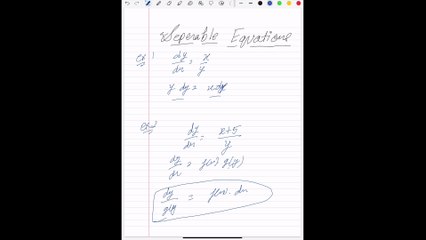 Seperable Equations
ex 1
dy/dx = x/y
y dy = x dx
ex 2
dy/dx = x+5/y
dy/dx = f(x) g(y)
dy/g(y) = f(x) · dx